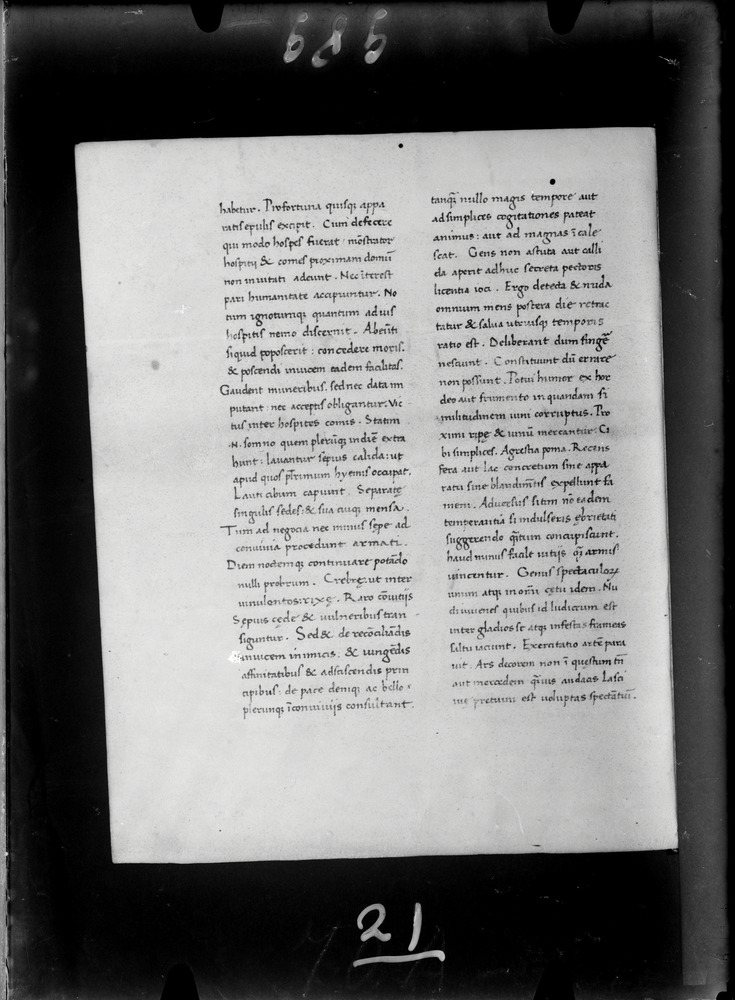 989
habetur. Profortuna quisq; appa
ratis epulis excipit. Cum defecere
qui modo hospes fuerat mōstrator
hospitij & comes proximam domū
non inuitati adeunt. Nec īterest
pari humanitate accipiuntur. No
tum ignotumq; quantum ad uis
hospitis nemo discernit. Abeūti
siquid poposcerit: concedere moris.
& poscendi inuicem eadem facilitas.
Gaudent muneribus. sed nec data im
putant: nec acceptis obligantur. Vic
tus inter hospites comis. Statim
.N. somno quem plerūq; in diē extra
hunt: lauantur sepius calida: ut
apud quos plurimum hyemis occupat.
Lauti cibum capiunt. Separatę
singulis sedes: & sua cuiq; mensa.
Tum ad negocia nec minus sepe ad
conuiuia procedunt armati.
Diem noctemq; continuare potādo
nulli probrum. Crebrę: ut inter
uinulentos: rixę. Raro cōuitijs
Sępius cęde & uulneribus tran
siguntur. Sed & de recōciliādis
inuicem inimicis: & iungēdis
affinitatibus & adsciscendis prin
cipibus: de pace deniq; ac bello
plerunq; ī conuiuijs consultant.
tanq̄ nullo magis tempore aut
ad simplices cogitationes pateat
animus: aut ad magnas īcale
scat. Gens non astuta aut calli
da aperit adhuc secreta pectoris
licentia ioci. Ergo detecta & nuda
omnium mens postera die retrac
tatur & salua utriusq; temporis
ratio est. Deliberant dum fingē
nesciunt. Constituunt dū errare
non possunt. Potui humor ex hor
deo aut frumento in quandam si
militudinem uini corruptus. Pro
ximi ripę & uinū mercantur. Ci
bi simplices. Agrestia poma. Recens
fera aut lac concretum sine appa
ratu sine blandimētis expellunt fa
mem. Aduersus sitim nō eadem
temperantia si indulseris ębrietati
suggerendo q̄tum concupiscunt.
haud minus facile uitijs q̄ armis
uincentur. Genus spectaculoꝝ
unum atq; in omi cętu idem. Nu
di iuuenes quibus id ludicrum est
inter gladios se atq; infestas frameas
saltu iaciunt. Exercitatio artē para
uit. Ars decorem non ī questum tn̄
aut mercedem q̄uis audacis lasci
uię pretium est uoluptas spectātiū.
21